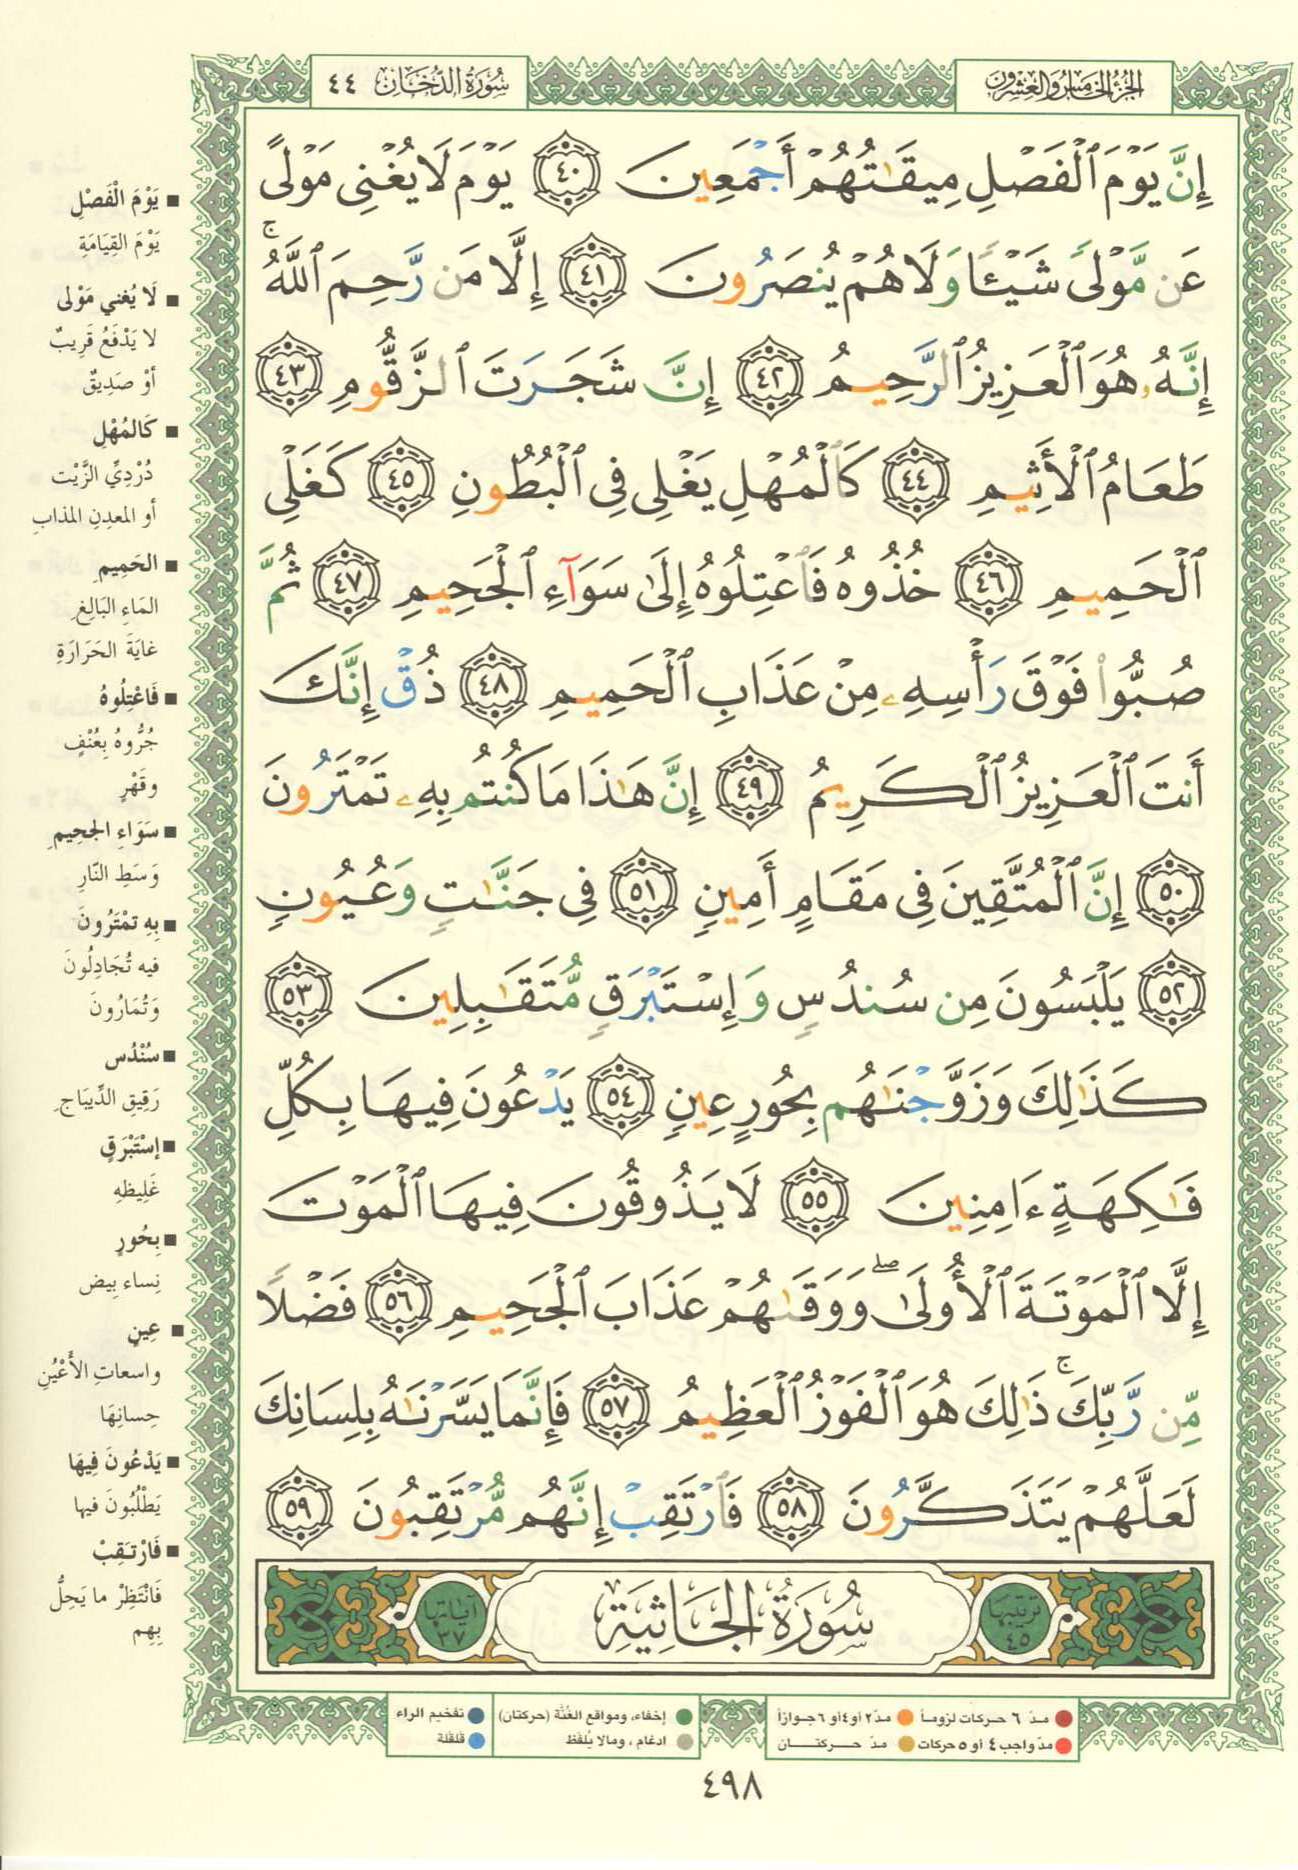 الجزء الخامس والعشرون
سُورَةُ الدُّخَان ٤٤
إِنَّ يَوْمَ ٱلْفَصْلِ مِيقَٰتُهُمْ أَجْمَعِينَ ٤٠ يَوْمَ لَا يُغْنِى مَوْلًى
عَن مَّوْلًى شَيْـًٔا وَلَا هُمْ يُنصَرُونَ ٤١ إِلَّا مَن رَّحِمَ ٱللَّهُ ۚ
إِنَّهُۥ هُوَ ٱلْعَزِيزُ ٱلرَّحِيمُ ٤٢ إِنَّ شَجَرَتَ ٱلزَّقُّومِ ٤٣
طَعَامُ ٱلْأَثِيمِ ٤٤ كَٱلْمُهْلِ يَغْلِى فِى ٱلْبُطُونِ ٤٥ كَغَلْىِ
ٱلْحَمِيمِ ٤٦ خُذُوهُ فَٱعْتِلُوهُ إِلَىٰ سَوَآءِ ٱلْجَحِيمِ ٤٧ ثُمَّ
صُبُّوا۟ فَوْقَ رَأْسِهِۦ مِنْ عَذَابِ ٱلْحَمِيمِ ٤٨ ذُقْ إِنَّكَ
أَنتَ ٱلْعَزِيزُ ٱلْكَرِيمُ ٤٩ إِنَّ هَٰذَا مَا كُنتُم بِهِۦ تَمْتَرُونَ
٥٠ إِنَّ ٱلْمُتَّقِينَ فِى مَقَامٍ أَمِينٍ ٥١ فِى جَنَّٰتٍ وَعُيُونٍ
٥٢ يَلْبَسُونَ مِن سُندُسٍ وَإِسْتَبْرَقٍ مُّتَقَٰبِلِينَ ٥٣
كَذَٰلِكَ وَزَوَّجْنَٰهُم بِحُورٍ عِينٍ ٥٤ يَدْعُونَ فِيهَا بِكُلِّ
فَٰكِهَةٍ ءَامِنِينَ ٥٥ لَا يَذُوقُونَ فِيهَا ٱلْمَوْتَ
إِلَّا ٱلْمَوْتَةَ ٱلْأُولَىٰ ۖ وَوَقَىٰهُمْ عَذَابَ ٱلْجَحِيمِ ٥٦ فَضْلًا
مِّن رَّبِّكَ ۚ ذَٰلِكَ هُوَ ٱلْفَوْزُ ٱلْعَظِيمُ ٥٧ فَإِنَّمَا يَسَّرْنَٰهُ بِلِسَانِكَ
لَعَلَّهُمْ يَتَذَكَّرُونَ ٥٨ فَٱرْتَقِبْ إِنَّهُم مُّرْتَقِبُونَ ٥٩
ترتيبها ٤٥
سُورَةُ الجَاثِيَةِ
آياتها ٣٧
■ يَوْمَ الْفَصْلِ
يَوْمَ القِيَامَةِ
■ لَا يُغْنِي مَوْلى
لا يَدْفَعُ قَرِيبٌ
أوْ صَدِيقٌ
■ كَالمُهْلِ
دُرْدِيِّ الزَّيْت
أو المعدِنِ المذابِ
■ الحَمِيمِ
المَاءِ البَالِغِ
غايَةَ الحَرَارَةِ
■ فَاعْتِلُوهُ
جُرُّوهُ بِعُنْفٍ
وقَهْرٍ
■ سَوَاءِ الجحِيمِ
وَسَطِ النّارِ
■ بِهِ تمْتَرُونَ
فيه تُجَادِلُونَ
وَتُمَارُونَ
■ سُنْدُس
رَقِيقِ الدِّيبَاجِ
■ إسْتَبْرَقٍ
غَلِيظِهِ
■ بِحُورٍ
نِساء بِيض
■ عِينٍ
واسعاتِ الأَعْيُنِ
حِسانِهَا
■ يَدْعُونَ فِيهَا
يَطْلُبُونَ فيها
■ فَارْتَقِبْ
فَانْتَظِرْ ما يَحِلُّ
بِهِم
مدّ ٦ حركات لزوماً مدّ ٢ أو ٤ أو ٦ جوازاً
مدّ واجب ٤ أو ٥ حركات مدّ حركتان
إخفاء، ومواقع الغُنَّة (حركتان) تفخيم الراء
ادغام، ومالا يُلفَظ قلقلة
٤٩٨